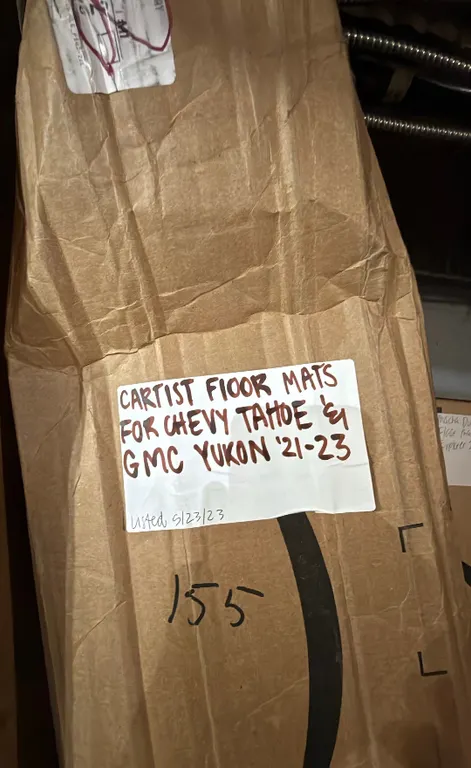 CARTIST FLOOR MATS
FOR CHEVY TAHOE &
GMC YUKON '21-23
Listed 5/23/23
155